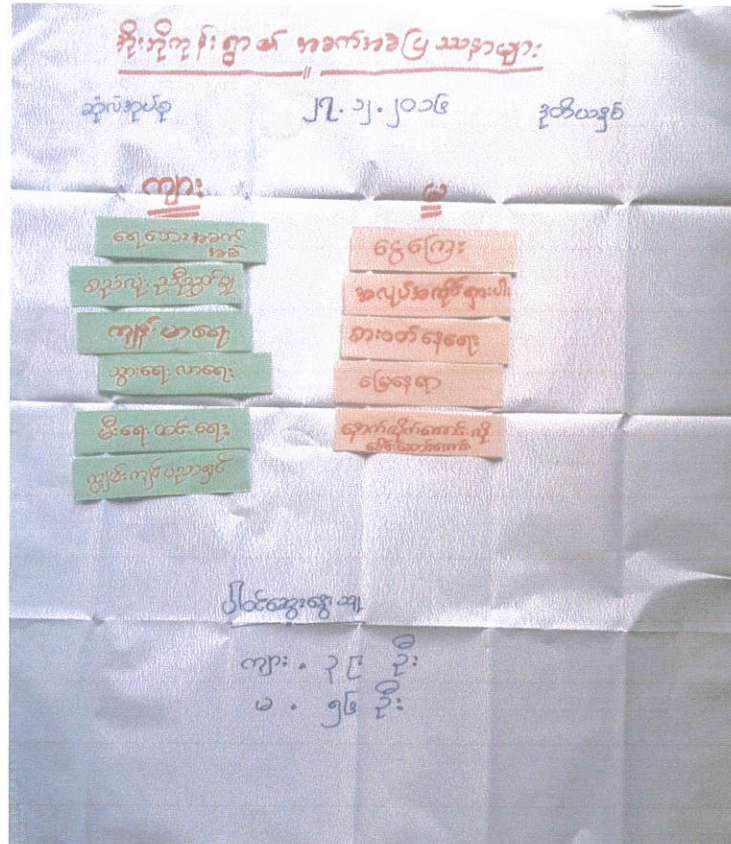 အိုးဘိုကုန်းရွာ၏ အခက်အခဲပြဿနာများ
ဆုံလဲအုပ်စု ၂၇.၁၂.၂၀၁၆ ဒုတိယနှစ်
ကျား
မ
ရေဘေးအခက်အခဲ
စည်လုံးညီညွတ်မှု
ကျန်းမာရေး
သွားရေးလာရေး
မီးရေးထင်းရေး
ကျွမ်းကျင်ပညာရှင်
ငွေကြေး
အလုပ်အကိုင်ရှားပါး
စားဝတ်နေရေး
မြေနေရာ
နောက်လိုက်ကောင်းလို
ခေါင်းဆောင်ကောင်း
ပါဝင်ဆွေးနွေးသူ
ကျား . ၃၉ ဦး
မ . ၅၆ ဦး